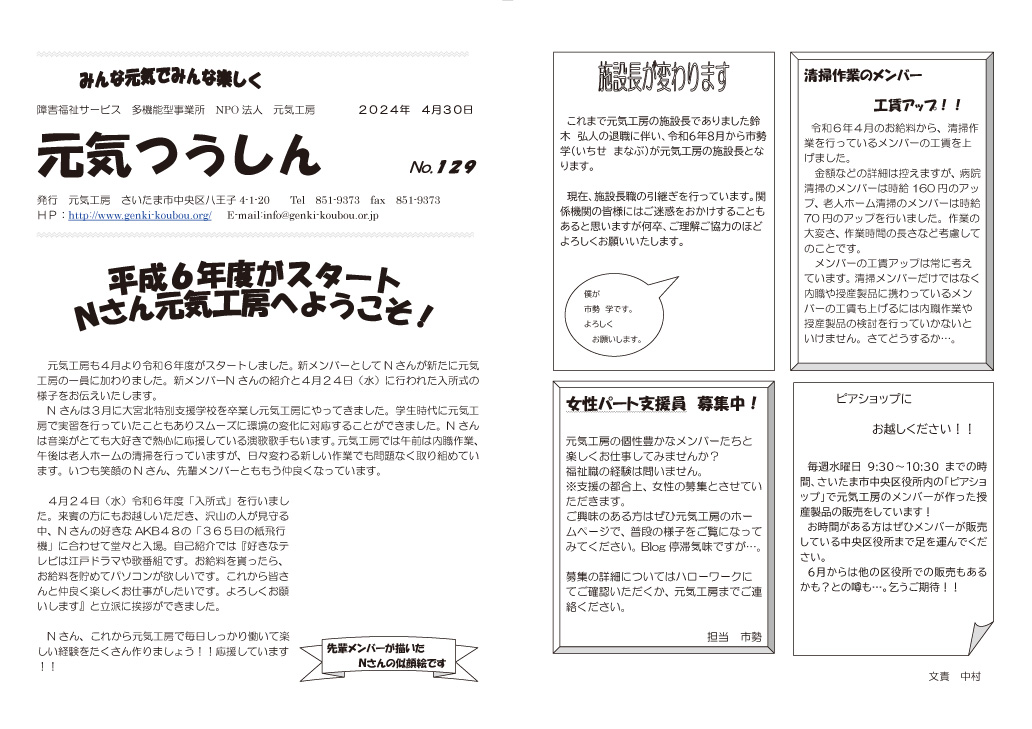 みんな元気でみんな楽しく
障害福祉サービス　多機能型事業所　NPO法人　元気工房　　　２０２４年　４月３０日
元気つうしん　No.129
発行　元気工房　さいたま市中央区八王子 4-1-20　　Tel　851-9373　fax　851-9373
ＨＰ：http://www.genki-koubou.org/　E-mail:info@genki-koubou.or.jp
平成６年度がスタート
Ｎさん元気工房へようこそ！
元気工房も４月より令和６年度がスタートしました。新メンバーとしてＮさんが新たに元気
工房の一員に加わりました。新メンバーN さんの紹介と４月２４日（水）に行われた入所式の
様子をお伝えいたします。
Ｎさんは３月に大宮北特別支援学校を卒業し元気工房にやってきました。学生時代に元気工
房で実習を行っていたこともありスムーズに環境の変化に対応することができました。Ｎさん
は音楽がとても大好きで熱心に応援している演歌歌手もいます。元気工房では午前は内職作業、
午後は老人ホームの清掃を行っていますが、日々変わる新しい作業でも問題なく取り組めてい
ます。いつも笑顔のＮさん、先輩メンバーとももう仲良くなっています。
４月２４日（水）令和６年度「入所式」を行いまし
た。来賓の方にもお越しいただき、沢山の人が見守る
中、Ｎさんの好きな AKB４８の「３６５日の紙飛行
機」に合わせて堂々と入場。自己紹介では『好きなテ
レビは江戸ドラマや歌番組です。お給料を貰ったら、
お給料を貯めてパソコンが欲しいです。これから皆さ
んと仲良く楽しくお仕事がしたいです。よろしくお願
いします』と立派に挨拶ができました。
Ｎさん、これから元気工房で毎日しっかり働いて楽
しい経験をたくさん作りましょう！！応援しています
！！
先輩メンバーが描いた
Ｎさんの似顔絵です
施設長が変わります
これまで元気工房の施設長でありました鈴
木　弘人の退職に伴い、令和６年８月から市勢
学（いちせ　まなぶ）が元気工房の施設長とな
ります。
現在、施設長職の引継ぎを行っています。関
係機関の皆様にはご迷惑をおかけすることも
あると思いますが何卒、ご理解ご協力のほど
よろしくお願いいたします。
僕が
市勢　学です。
よろしく
お願いします。
清掃作業のメンバー
工賃アップ！！
令和６年４月のお給料から、清掃作
業を行っているメンバーの工賃を上
げました。
金額などの詳細は控えますが、病院
清掃のメンバーは時給 160 円のアッ
プ、老人ホーム清掃のメンバーは時給
70 円のアップを行いました。作業の
大変さ、作業時間の長さなど考慮して
のことです。
メンバーの工賃アップは常に考え
ています。清掃メンバーだけではなく
内職や授産製品に携わっているメン
バーの工賃も上げるには内職作業や
授産製品の検討を行っていかないと
いけません。さてどうするか…。
女性パート支援員　募集中！
元気工房の個性豊かなメンバーたちと
楽しくお仕事してみませんか？
福祉職の経験は問いません。
※支援の都合上、女性の募集とさせてい
ただきます。
ご興味のある方はぜひ元気工房のホー
ムページで、普段の様子をご覧になって
みてください。Blog 停滞気味ですが…。
募集の詳細についてはハローワークに
てご確認いただくか、元気工房までご連
絡ください。
担当　市勢
ピアショップに
お越しください！！
毎週水曜日　9:30～10:30 までの時
間、さいたま市中央区役所内の「ピアショ
ップ」で元気工房のメンバーが作った授
産製品の販売をしています！
お時間がある方はぜひメンバーが販売
している中央区役所まで足を運んでくだ
さい。
６月からは他の区役所での販売もある
かも？との噂も…。乞うご期待！！
文責　中村